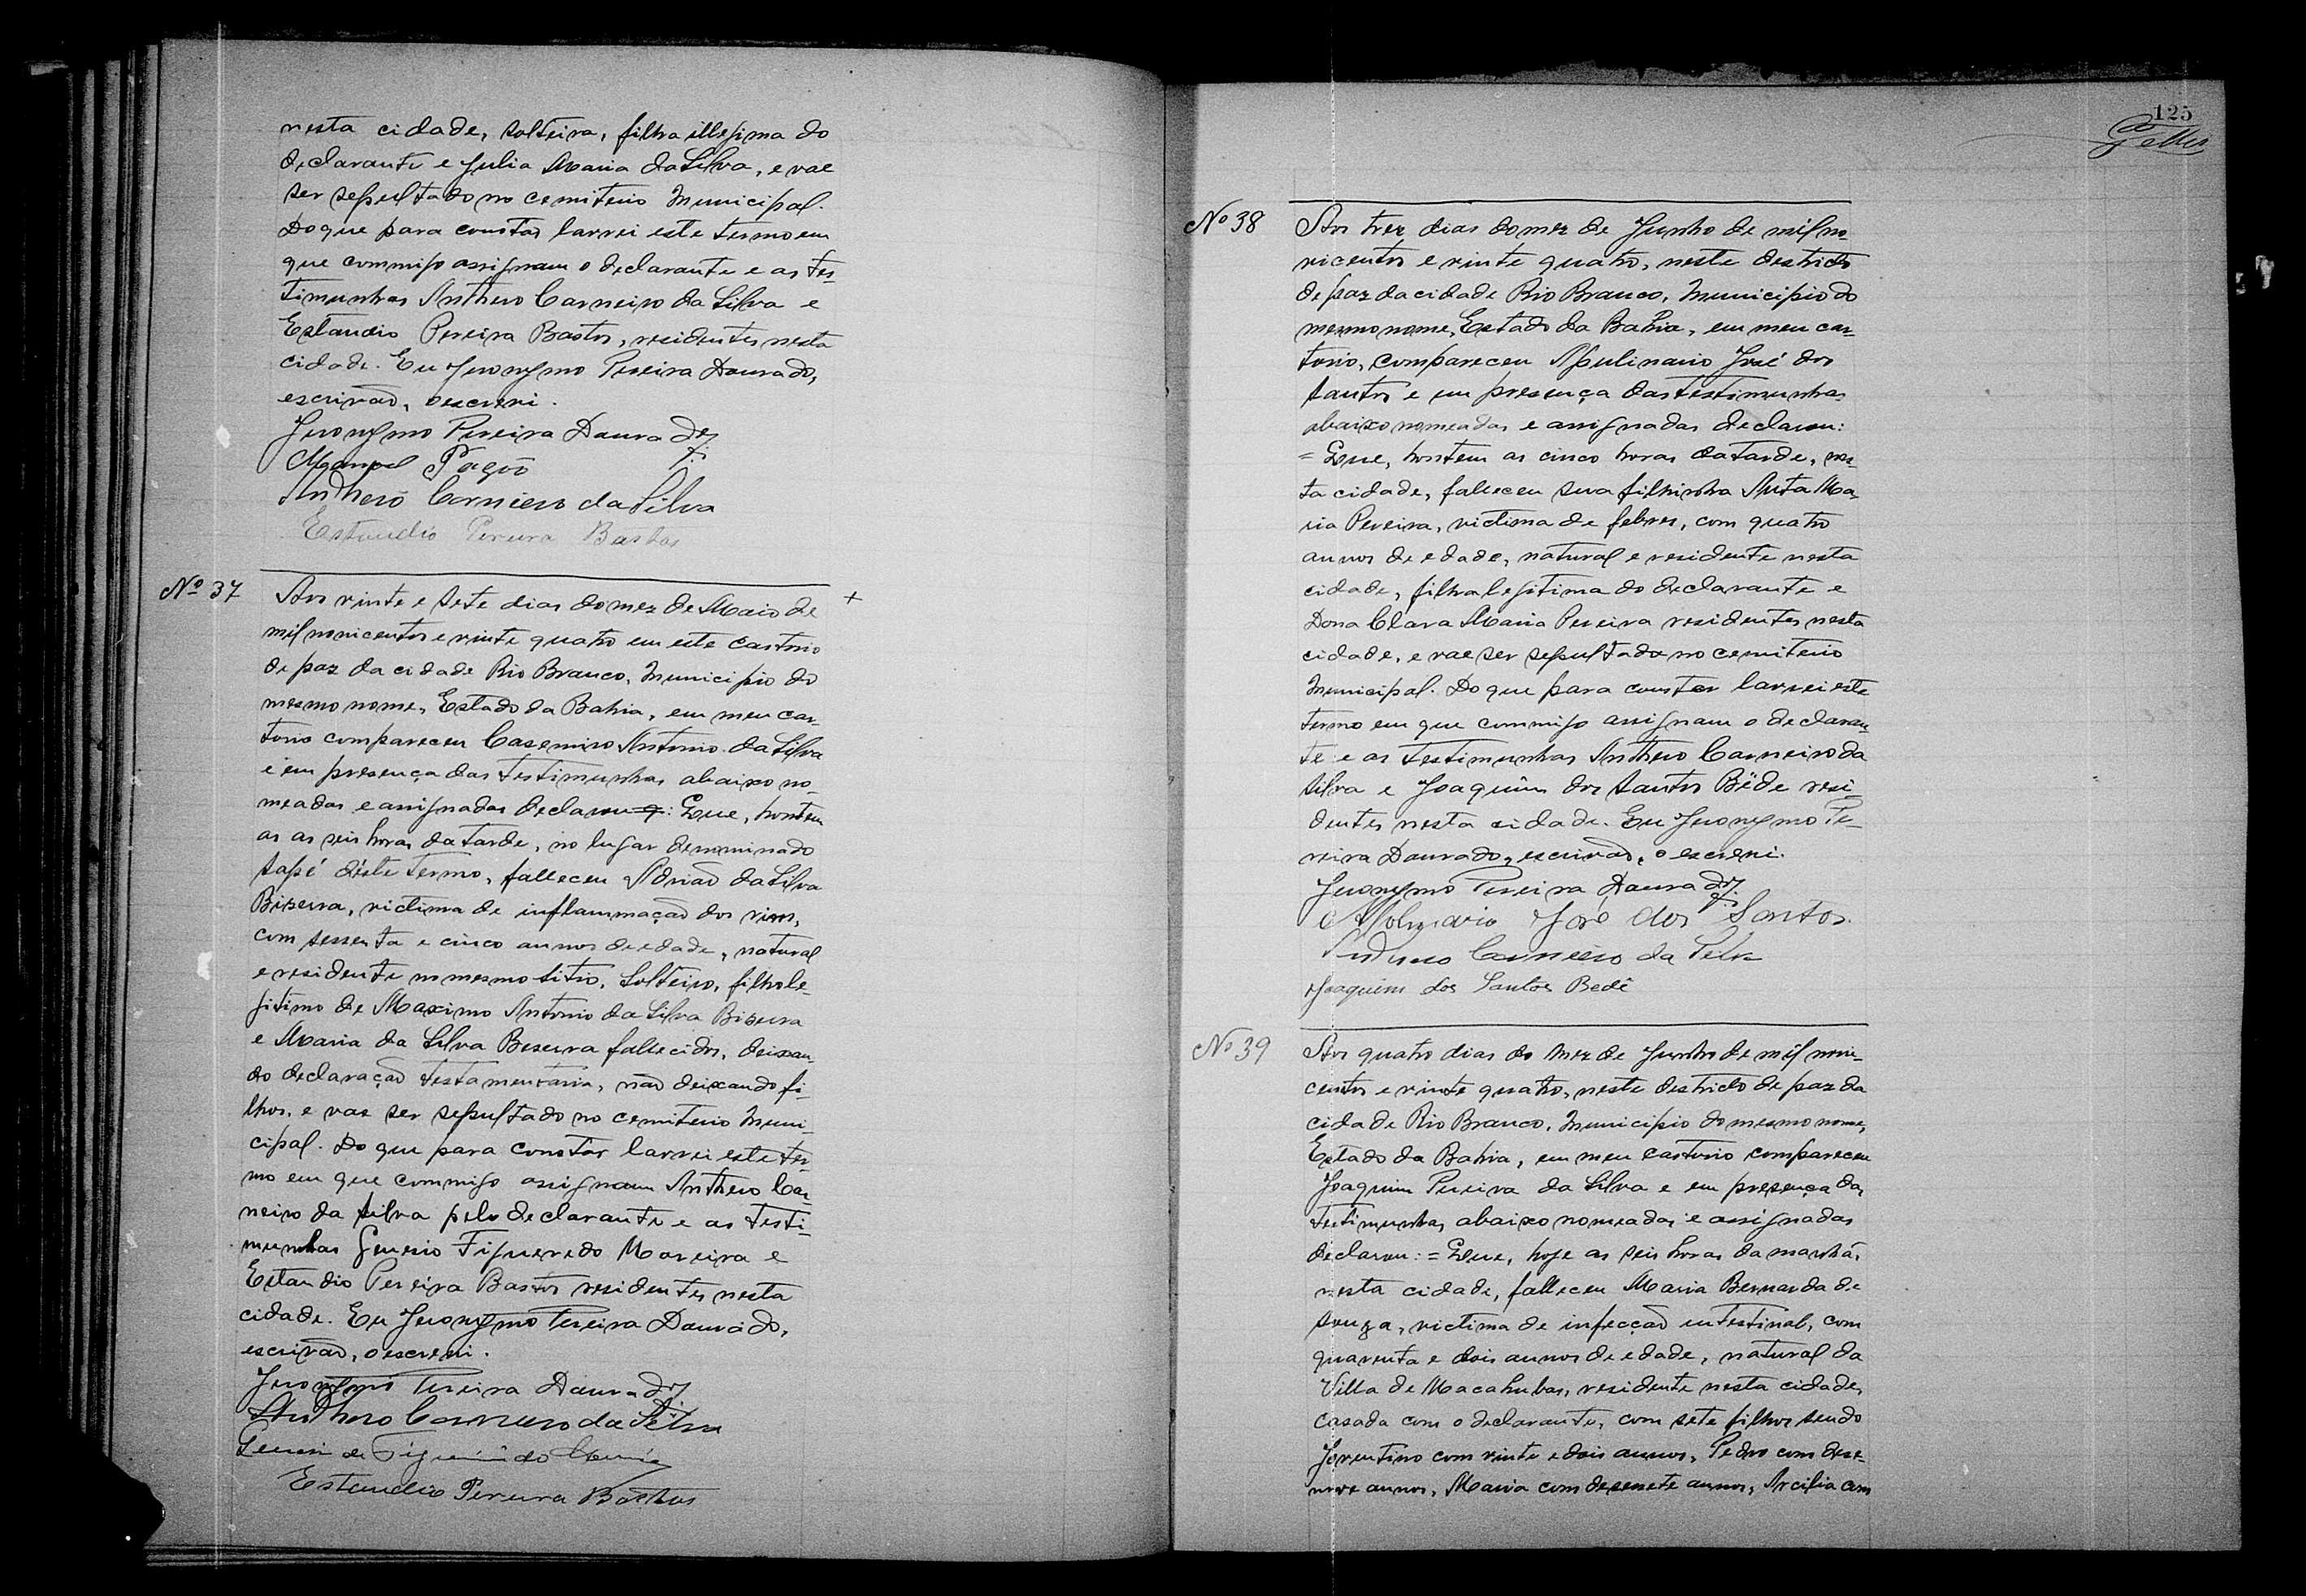 nesta cidade, solteira, filha illegima do
declarante e Julia Maria da Silva, e vae
ser sepultado no cemiterio Municipal.
Do que para constar lavrei este termo em
que commigo assignam o declarante e as tes-
timunhas Anthero Carneiro da Silva e
Estandio Pereira Bastos, residentes nesta
cidade. Eu Jeronymo Pereira Dourado,
escrivão, o escrevi.
Jeronymo Pereira Dourado
Manoel
Anthero Carneiro da Silva
Estandio Pereira Bastos
Nº 37
Aos vinte e sete dias do mez de Maio de
mil novicentos e vinte quatro em este cartorio
de paz da cidade Rio Branco, Municipio do
mesmo nome, Estado da Bahia, em meu car-
torio compareceu Casemiro Antonio da Silva
e em presença das testimunhas abaixo no-
meadas e assignadas declarou q: Que, hontem
as as seis horas da tarde, no lugar denominado
Sapé dêste termo, falleceu Adrião da Silva
Biserra, victima de inflammação dos rins,
com sessenta e cinco annos de edade, natural
e residente no mesmo sitio, solteiro, filho le-
gitimo de Maximo Antonio da Silva Biserra
e Maria da Silva Beserra fallecidos, deixan-
do declaração testamentaria, não deixando fi-
lhos, e vae ser sepultado no cemiterio Muni-
cipal. Do que para constar lavrei este ter-
mo em que commigo assignam Anthero Car-
neiro da Silva pelo declarante e as testi-
munhas Genesio Figueredo Moreira e
Estandio Pereira Bastos residentes nesta
cidade. Eu Jeronymo Pereira Dourado,
escrivão, o escrevi.
Jeronymo Pereira Dourado
Anthero Carneiro da Silva
de Figueirêdo
Estandio Pereira Bastos
125
Nº 38
Aos trez dias do mez de Junho de mil no-
vicentos e vinte quatro, neste destricto
de paz da cidade Rio Branco, Municipio do
mesmo nome, Estado da Bahia, em meu car-
torio, compareceu Apulinario José dos
Santos e em presença das testimunhas
abaixo nomeadas e assignadas declarou:
= Que, hontem as cinco horas da tarde, nes-
ta cidade, falleceu sua filhinha Anta Ma-
ria Pereira, victima de febres, com quatro
annos de edade, natural e residente nesta
cidade, filha legitima do declarante e
Dona Clara Maria Pereira residentes nesta
cidade, e vae ser sepultada no cemiterio
Municipal. Do que para constar lavrei este
termo em que commigo assignam o declaran-
te e as testimunhas Anthero Carneiro da
Silva e Joaquim dos Santos Bêde resi-
dentes nesta cidade. Eu Jeronymo Pe-
reira Dourado, escrivão, o escrevi.
Jeronymo Pereira Dourado
José dos Santos.
Anthero Carneiro da Silva
Joaquim dos Santos Bedê
Nº 39
Aos quatro dias do Mez de Junho de mil novi-
centos e vinte quatro, neste destricto de paz da
cidade Rio Branco, Municipio do mesmo nome,
Estado da Bahia, em meu cartorio compareceu
Joaquim Pereira da Silva e em presença das
testimunhas abaixo nomeadas e assignadas
declarou: = Que, hoje as seis horas da manhã,
nesta cidade, falleceu Maria Bernarda de
Souza, victima de infecção intestinal, com
quarenta e dois annos de edade, natural da
Villa de Macahubas, residente nesta cidade,
casada com o declarante, com sete filhos sendo
Joventino com vinte e dois annos, Pedro com dese-
nove annos, Maria com desesete annos, Arcilia com